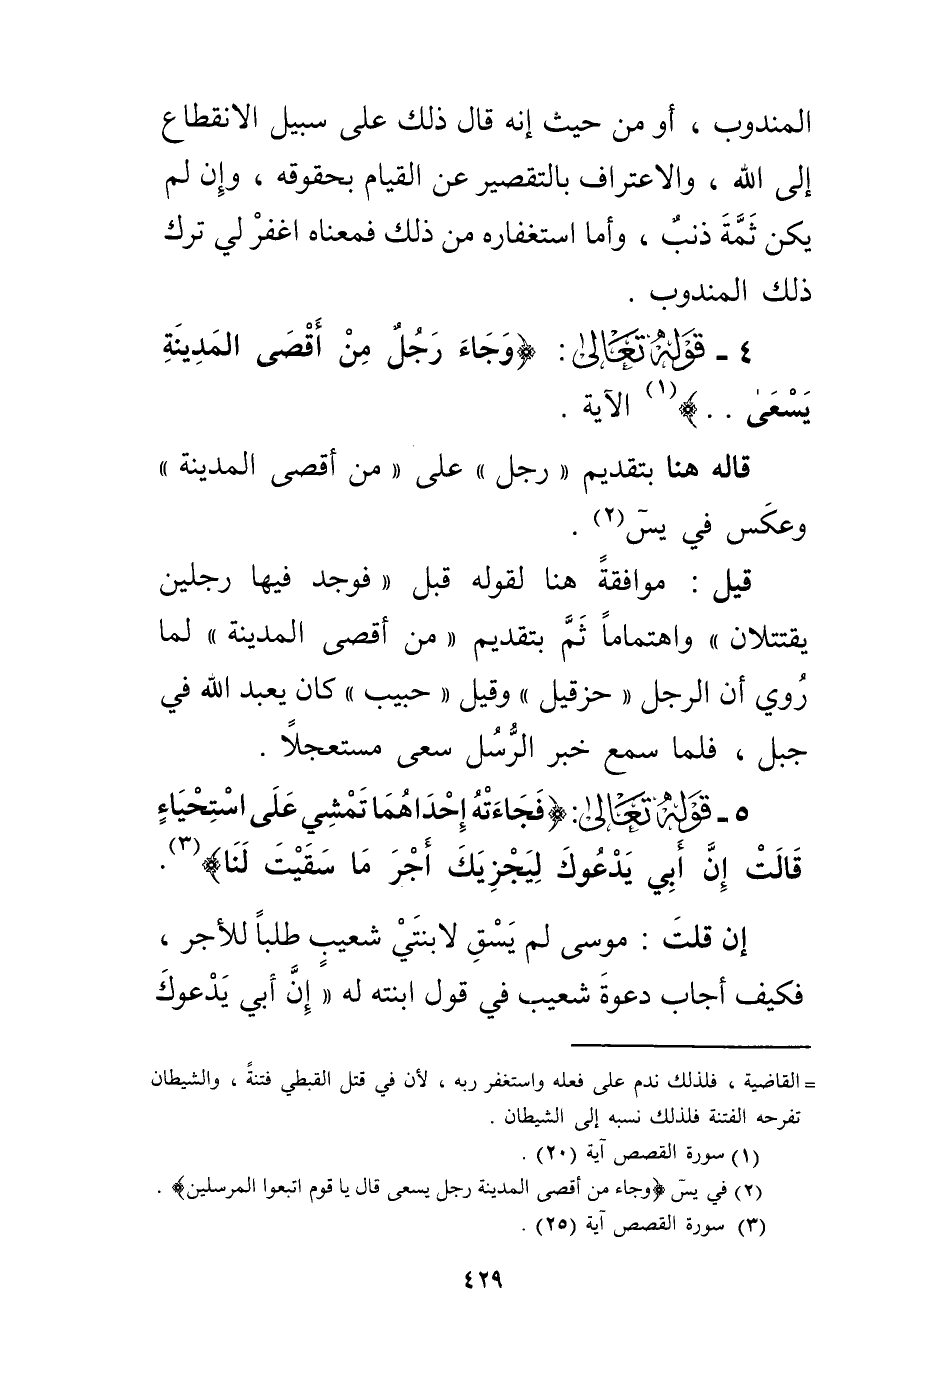 المندوب ، أو من حيث إنه قال ذلك على سبيل الانقطاع
إلى الله ، والاعتراف بالتقصير عن القيام بحقوقه ، وإِن لم
يكن ثَمَّةَ ذنبٌ ، وأما استغفاره من ذلك فمعناه اغفرْ لي ترك
ذلك المندوب .
٤ ـ قَوْلُهُ تَعَالَىٰ : ﴿وَجَاءَ رَجُلٌ مِنْ أَقْصَى المَدِينَةِ
يَسْعَىٰ . .﴾(١) الآية .
قاله هنا بتقديم « رجل » على « من أقصى المدينة »
وعكَس في يسٓ(٢) .
قيل : موافقةً هنا لقوله قبل « فوجد فيها رجلين
يقتتلان » واهتماماً ثَمَّ بتقديم « من أقصى المدينة » لما
رُوي أن الرجل « حزقيل » وقيل « حبيب » كان يعبد الله في
جبل ، فلما سمع خبر الرُّسُل سعى مستعجلاً .
٥ ـ قَوْلُهُ تَعَالَىٰ : ﴿فَجَاءَتْهُ إِحْدَاهُمَا تَمْشِي عَلَى اسْتِحْيَاءٍ
قَالَتْ إِنَّ أَبِي يَدْعُوكَ لِيَجْزِيَكَ أَجْرَ مَا سَقَيْتَ لَنَا﴾(٣) .
إن قلتَ : موسى لم يَسْقِ لابنتَيْ شعيبٍ طلباً للأجر ،
فكيف أجاب دعوةَ شعيب في قول ابنته له « إِنَّ أبي يَدْعوكَ
= القاضية ، فلذلك ندم على فعله واستغفر ربه ، لأن في قتل القبطي فتنةً ، والشيطان
تفرحه الفتنة فلذلك نسبه إلى الشيطان .
(١) سورة القصص آية (٢٠) .
(٢) في يسٓ ﴿وجاء من أقصى المدينة رجل يسعى قال يا قوم اتبعوا المرسلين﴾ .
(٣) سورة القصص آية (٢٥) .
٤٢٩